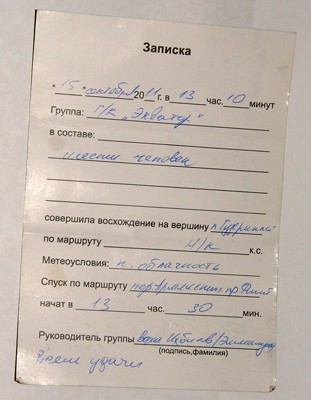 Записка
"15" октября 2011 г. в 13 час. 10 минут
Группа: Г/к "Экватор"
в составе:
шести человек
совершила восхождение на вершину п.
по маршруту Н/к к.с.
Метеоусловия: п. облачность
Спуск по маршруту
начат в 13 час. 30 мин.
Руководитель группы
(подпись,фамилия)
Всем удачи